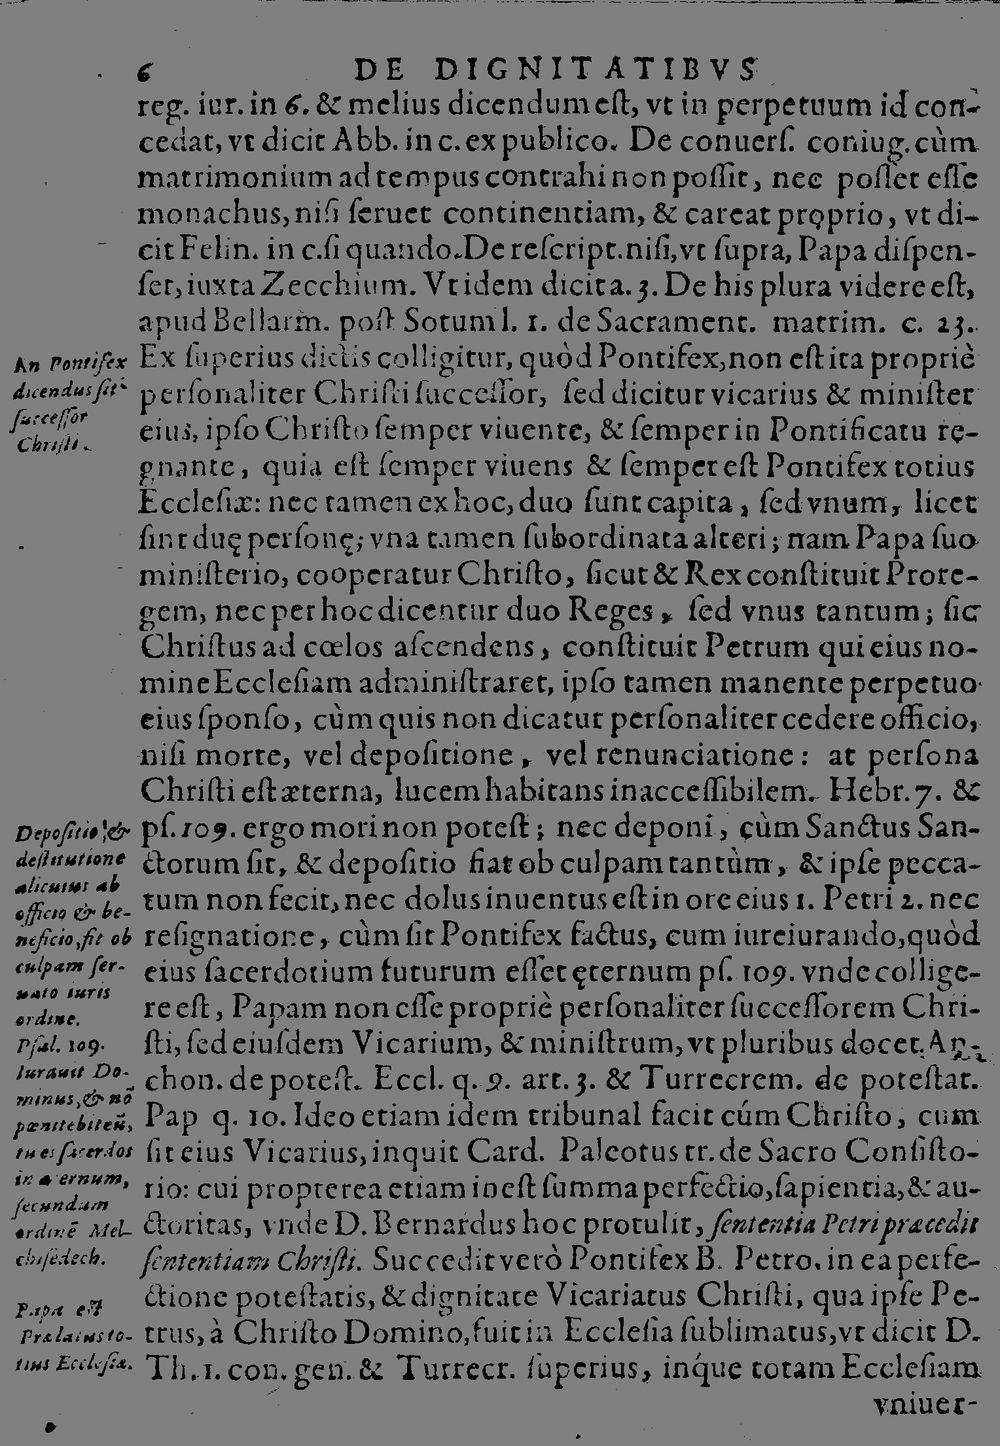 6 DE DIGNITATIBVS
reg. iur. in 6. & melius dicendum eſt, vt in perpetuum id con-
cedat, vt dicit Abb. in c. ex publico. De conuerſ. coniug. cùm
matrimonium ad tempus contrahi non poſſit, nec poſſet eſſe
monachus, niſi ſeruet continentiam, & careat proprio, vt di-
cit Felin. in c. ſi quando. De reſcript. niſi, vt ſupra, Papa diſpen-
ſet, iuxta Zecchium. Vt idem dicit a. 3. De his plura videre eſt,
apud Bellarm. poſt Sotum l. 1. de Sacrament. matrim. c. 23.
Ex ſuperius dictis colligitur, quòd Pontifex, non eſt ita propriè
perſonaliter Chriſti ſucceſſor, ſed dicitur vicarius & miniſter
eius, ipſo Chriſto ſemper viuente, & ſemper in Pontificatu rę-
gnante, quia eſt ſemper viuens & ſemper eſt Pontifex totius
Eccleſiæ: nec tamen ex hoc, duo ſunt capita, ſed vnum, licet
ſint duę perſonę; vna tamen ſubordinata alteri; nam Papa ſuo
miniſterio, cooperatur Chriſto, ſicut & Rex conſtituit Prore-
gem, nec per hoc dicentur duo Reges, ſed vnus tantum; ſic
Chriſtus ad cœlos aſcendens, conſtituit Petrum qui eius no-
mine Eccleſiam adminiſtraret, ipſo tamen manente perpetuo
eius ſponſo, cùm quis non dicatur perſonaliter cedere officio,
niſi morte, vel depoſitione, vel renunciatione: at perſona
Chriſti eſt æterna, lucem habitans inacceſſibilem. Hebr. 7. &
pſ. 109. ergo mori non poteſt; nec deponi, cùm Sanctus San-
ctorum ſit, & depoſitio fiat ob culpam tantùm, & ipſe pecca-
tum non fecit, nec dolus inuentus eſt in ore eius 1. Petri 2. nec
reſignatione, cùm ſit Pontifex factus, cum iureiurando, quòd
eius ſacerdotium futurum eſſet ęternum pſ. 109. vnde collige-
re eſt, Papam non eſſe propriè perſonaliter ſucceſſorem Chri-
ſti, ſed eiuſdem Vicarium, & miniſtrum, vt pluribus docet. An-
chon. de poteſt. Eccl. q. 9. art. 3. & Turrecrem. de poteſtat.
Pap q. 10. Ideo etiam idem tribunal facit cúm Chriſto, cum
ſit eius Vicarius, inquit Card. Paleotus tr. de Sacro Conſiſto-
rio: cui propterea etiam ineſt ſumma perfectio, ſapientia, & au-
ctoritas, vnde D. Bernardus hoc protulit, ſententia Petri præcedit
ſententiam Chriſti. Succedit verò Pontifex B. Petro, in ea perfe-
ctione poteſtatis, & dignitate Vicariatus Chriſti, qua ipſe Pe-
trus, à Chriſto Domino, fuit in Eccleſia ſublimatus, vt dicit D.
Th. 1. con. gen. & Turrecr. ſuperius, inque totam Eccleſiam
vniuer-
An Pontifex
dicendus ſit
ſucceſſor
Chriſti.
Depoſitio &
deſtitutione
alicuius ab
officio & be-
neficio, fit ob
culpam ſer-
uato iuris
ordine.
Pſal. 109.
Iurauit Do-
minus, & nō
pœnitebit eū,
tu es ſacerdos
in æternum,
ſecundum
ordinē Mel-
chiſedech.
Papa eſt
Prælatus to-
tius Eccleſiæ.